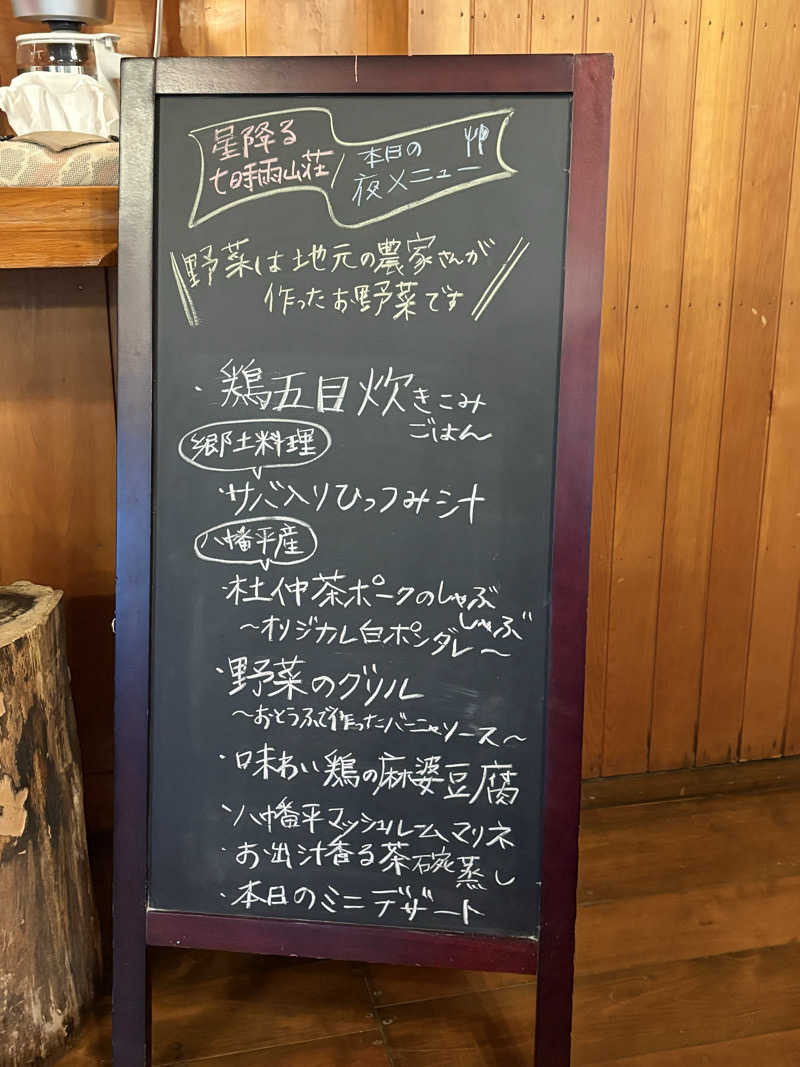 星降る
七時雨山荘
本日の
夜メニュー
野菜は地元の農家さんが
作ったお野菜です
・鶏五目炊きこみ
ごはん
郷土料理
・サバ入りひっつみ汁
八幡平産
・杜仲茶ポークのしゃぶ
しゃぶ
～オリジナル白ポンダレ～
・野菜のグリル
～おとうふで作ったバーニャソース～
・味わい鶏の麻婆豆腐
・八幡平マッシュルームマリネ
・お出汁香る茶碗蒸し
・本日のミニデザート